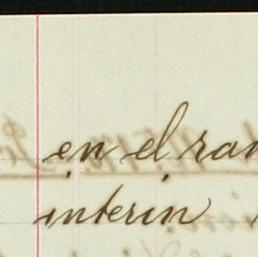 en el ran
interin